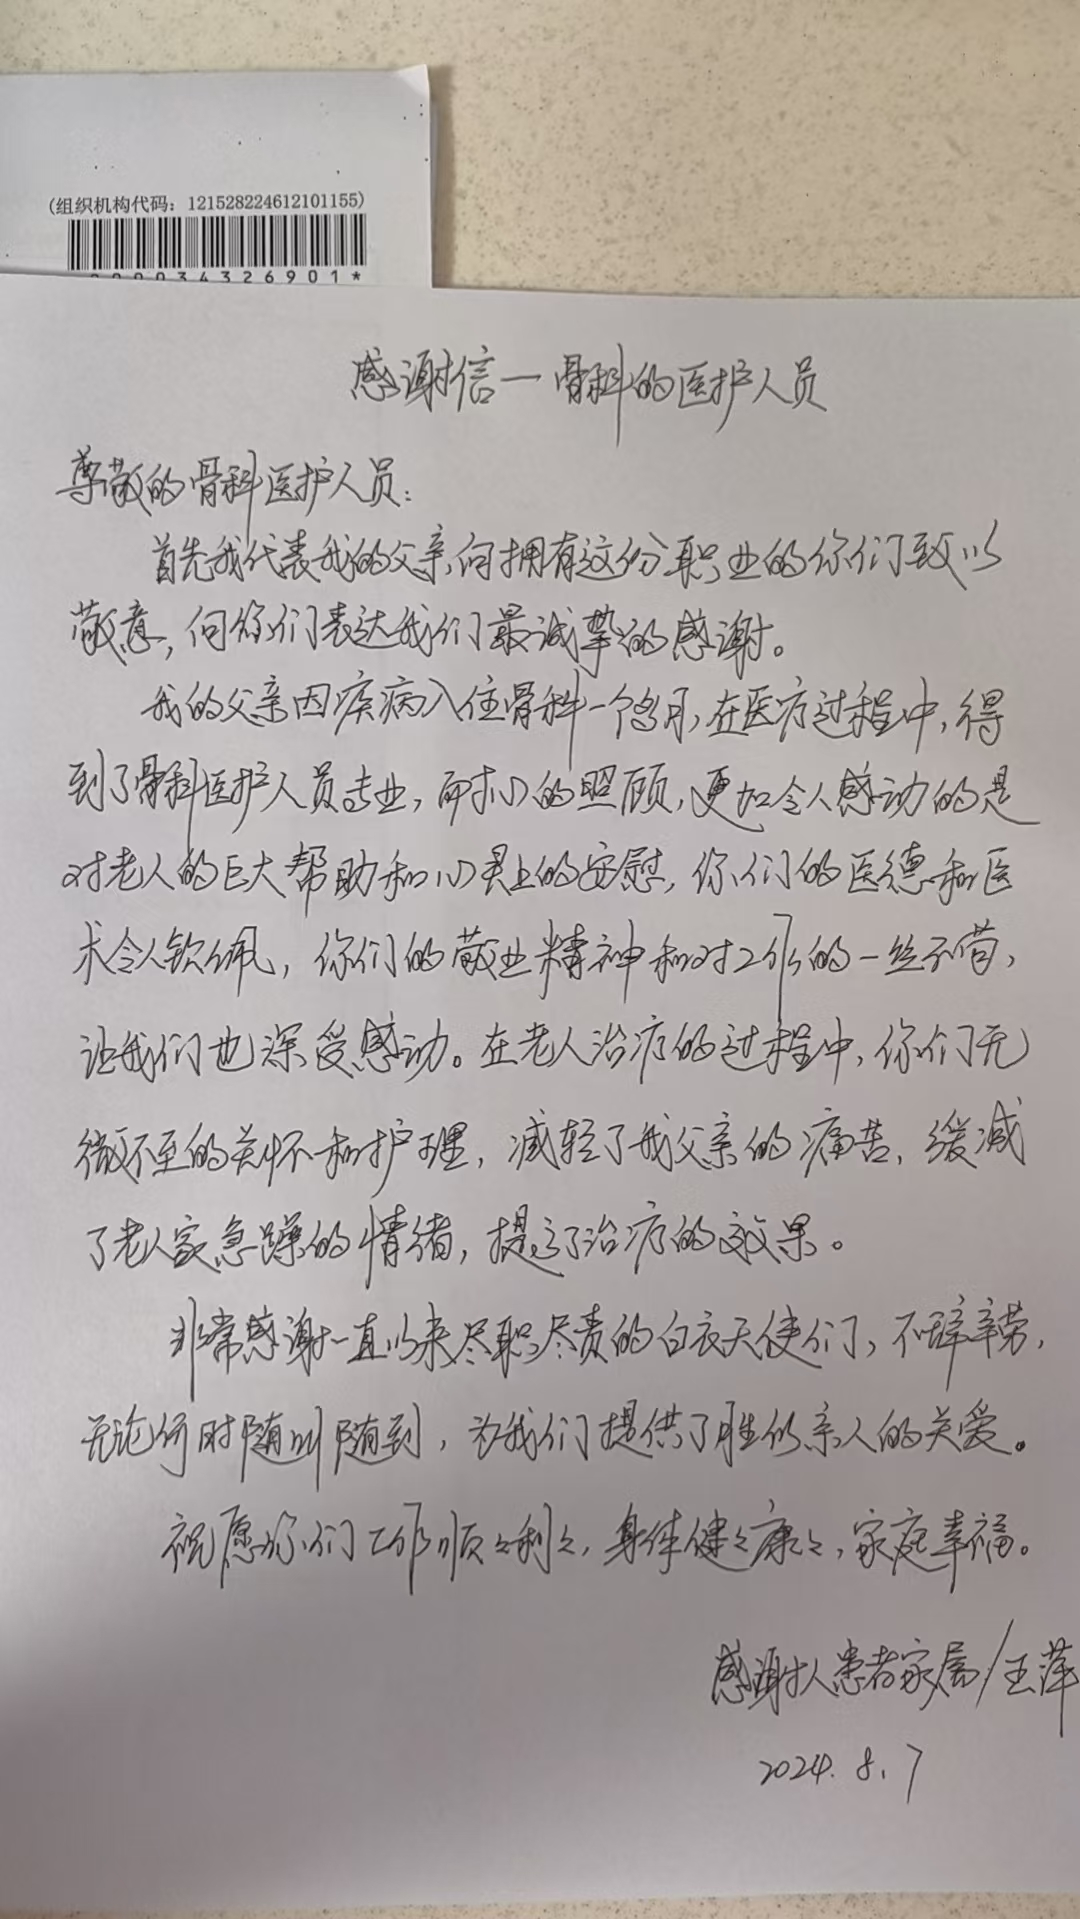 (组织机构代码：121528224612101155)
34326901*
感谢信一骨科的医护人员
尊敬的骨科医护人员：
首先我代表我的父亲，向拥有这份职业的你们致以
敬意，向你们表达我们最诚挚的感谢。
我的父亲因疾病入住骨科一个多月，在医疗过程中，得
到了骨科医护人员专业，耐心的照顾，更加令人感动的是
对老人的巨大帮助和心灵上的安慰，你们的医德和医
术令人钦佩，你们的敬业精神和对工作的一丝不苟，
让我们也深受感动。在老人治疗的过程中，你们无
微不至的关怀和护理，减轻了我父亲的痛苦，缓减
了老人家急躁的情绪，提高了治疗的效果。
非常感谢一直以来尽职尽责的白衣天使们，不辞辛劳，
无论何时随叫随到，为我们提供了胜似亲人的关爱。
祝愿你们工作顺々利々，身体健々康々，家庭幸福。
感谢人患者家属/王萍
2024.8.7